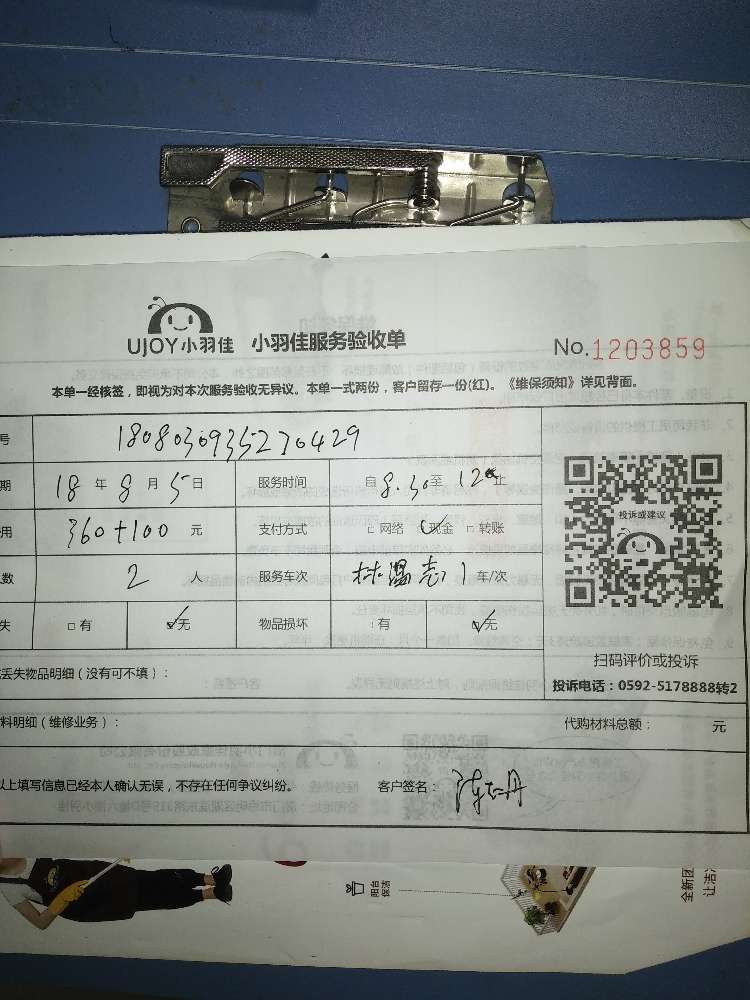 UJOY小羽佳 小羽佳服务验收单 No.1203859
本单一经核签，即视为对本次服务验收无异议。本单一式两份，客户留存一份(红)。《维保须知》详见背面。
号 1808030935230429
期 18 年 8 月 5 日 服务时间 自 8.30 至 12 止
用 360+100 元 支付方式 □ 网络 现金 □ 转账
数 2 人 服务车次 林温志 1 车/次
失 □ 有 无 物品损坏 有 无
投诉或建议
扫码评价或投诉
投诉电话：0592-5178888转2
丢失物品明细（没有可不填）：
料明细（维修业务）： 代购材料总额： 元
以上填写信息已经本人确认无误，不存在任何争议纠纷。 客户签名：
阳台
保洁
全新团
让洁